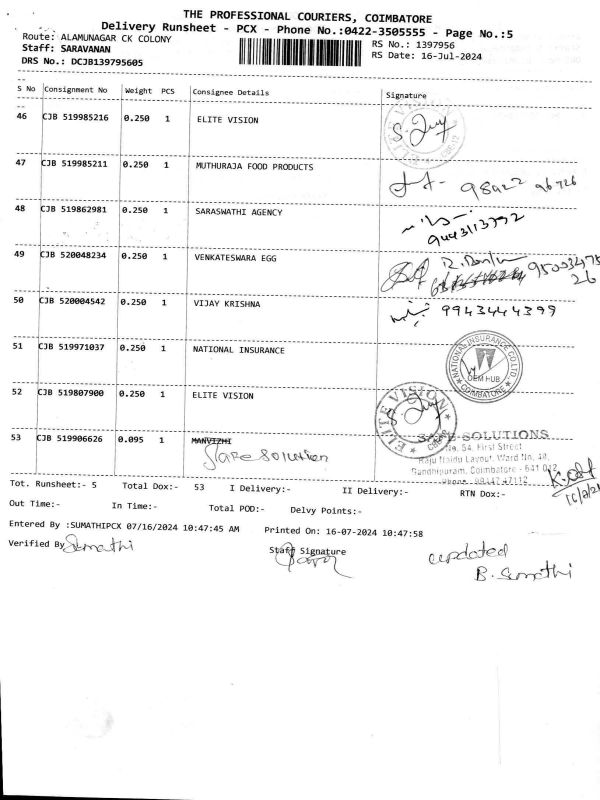 THE PROFESSIONAL COURIERS, COIMBATORE
Delivery Runsheet - PCX - Phone No.:0422-3505555 - Page No.:5
Route: ALAMUNAGAR CK COLONY
RS No.: 1397956
Staff: SARAVANAN
RS Date: 16-Jul-2024
DRS No.: DCJB139795605
S No Consignment No Weight PCS Consignee Details Signature
46 CJB 519985216 0.250 1 ELITE VISION
47 CJB 519985211 0.250 1 MUTHURAJA FOOD PRODUCTS
98922 96726
48 CJB 519862981 0.250 1 SARASWATHI AGENCY
9443113992
49 CJB 520048234 0.250 1 VENKATESWARA EGG
95003475
26
50 CJB 520004542 0.250 1 VIJAY KRISHNA 9943444399
51 CJB 519971037 0.250 1 NATIONAL INSURANCE
NATIONAL INSURANCE CO LTD
OEM HUB
COIMBATORE
52 CJB 519807900 0.250 1 ELITE VISION
ELITE VISION
53 CJB 519906626 0.095 1 MANVIZHI
Solution
SAFE SOLUTIONS
No. 54, First Street
Raju Naidu Layout, Ward No, 48,
Gandhipuram, Coimbatore - 641 012
Tot. Runsheet:- 5 Total Dox:- 53 I Delivery:- II Delivery:- RTN Dox:-
Out Time:- In Time:- Total POD:- Delvy Points:-
Entered By :SUMATHIPCX 07/16/2024 10:47:45 AM Printed On: 16-07-2024 10:47:58
Verified By Sumathi
Staff Signature
updated
B. Sumathi